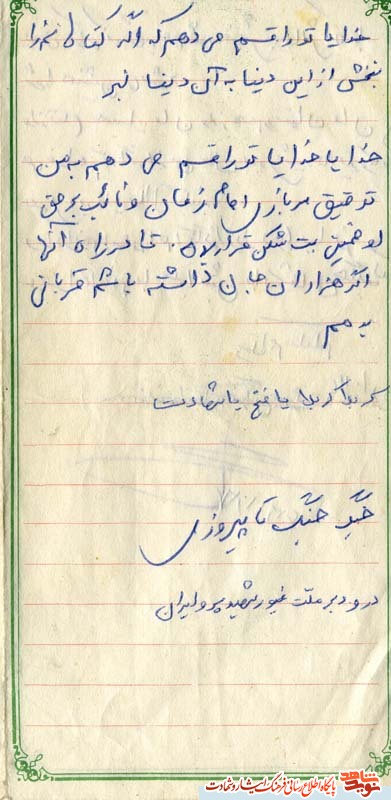 خدایا تو را قسم می دهم که اگر گناهانم را
نبخشی از این دنیا به آن دنیا نبر
خدایا خدایا تو را قسم می دهم به من
توفیق سربازی امام زمان و نائب برحق
او خمینی بت شکن قرار بده. تا در راه آنها
اگر هزاران جان داشته باشم قربانی
بدهم
کربلا کربلا یا فتح یا شهادت
جنگ جنگ تا پیروزی
درود بر ملت غیور شهید پرور ایران
نوید شاهد
پایگاه اطلاع رسانی فرهنگ ایثار و شهادت